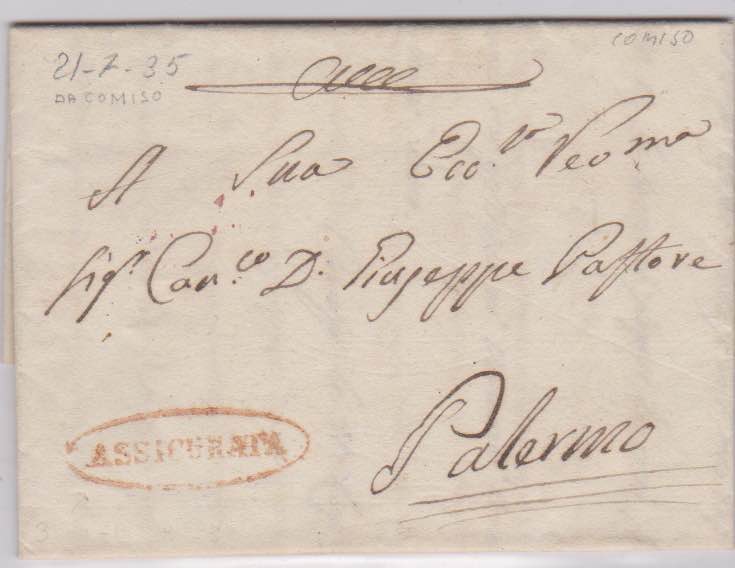 21-7-35
DA COMISO
COMISO
A Sua Ecc.za
Sig.r Can.co D. Giuseppe Pastore
ASSICURATA
Palermo
3